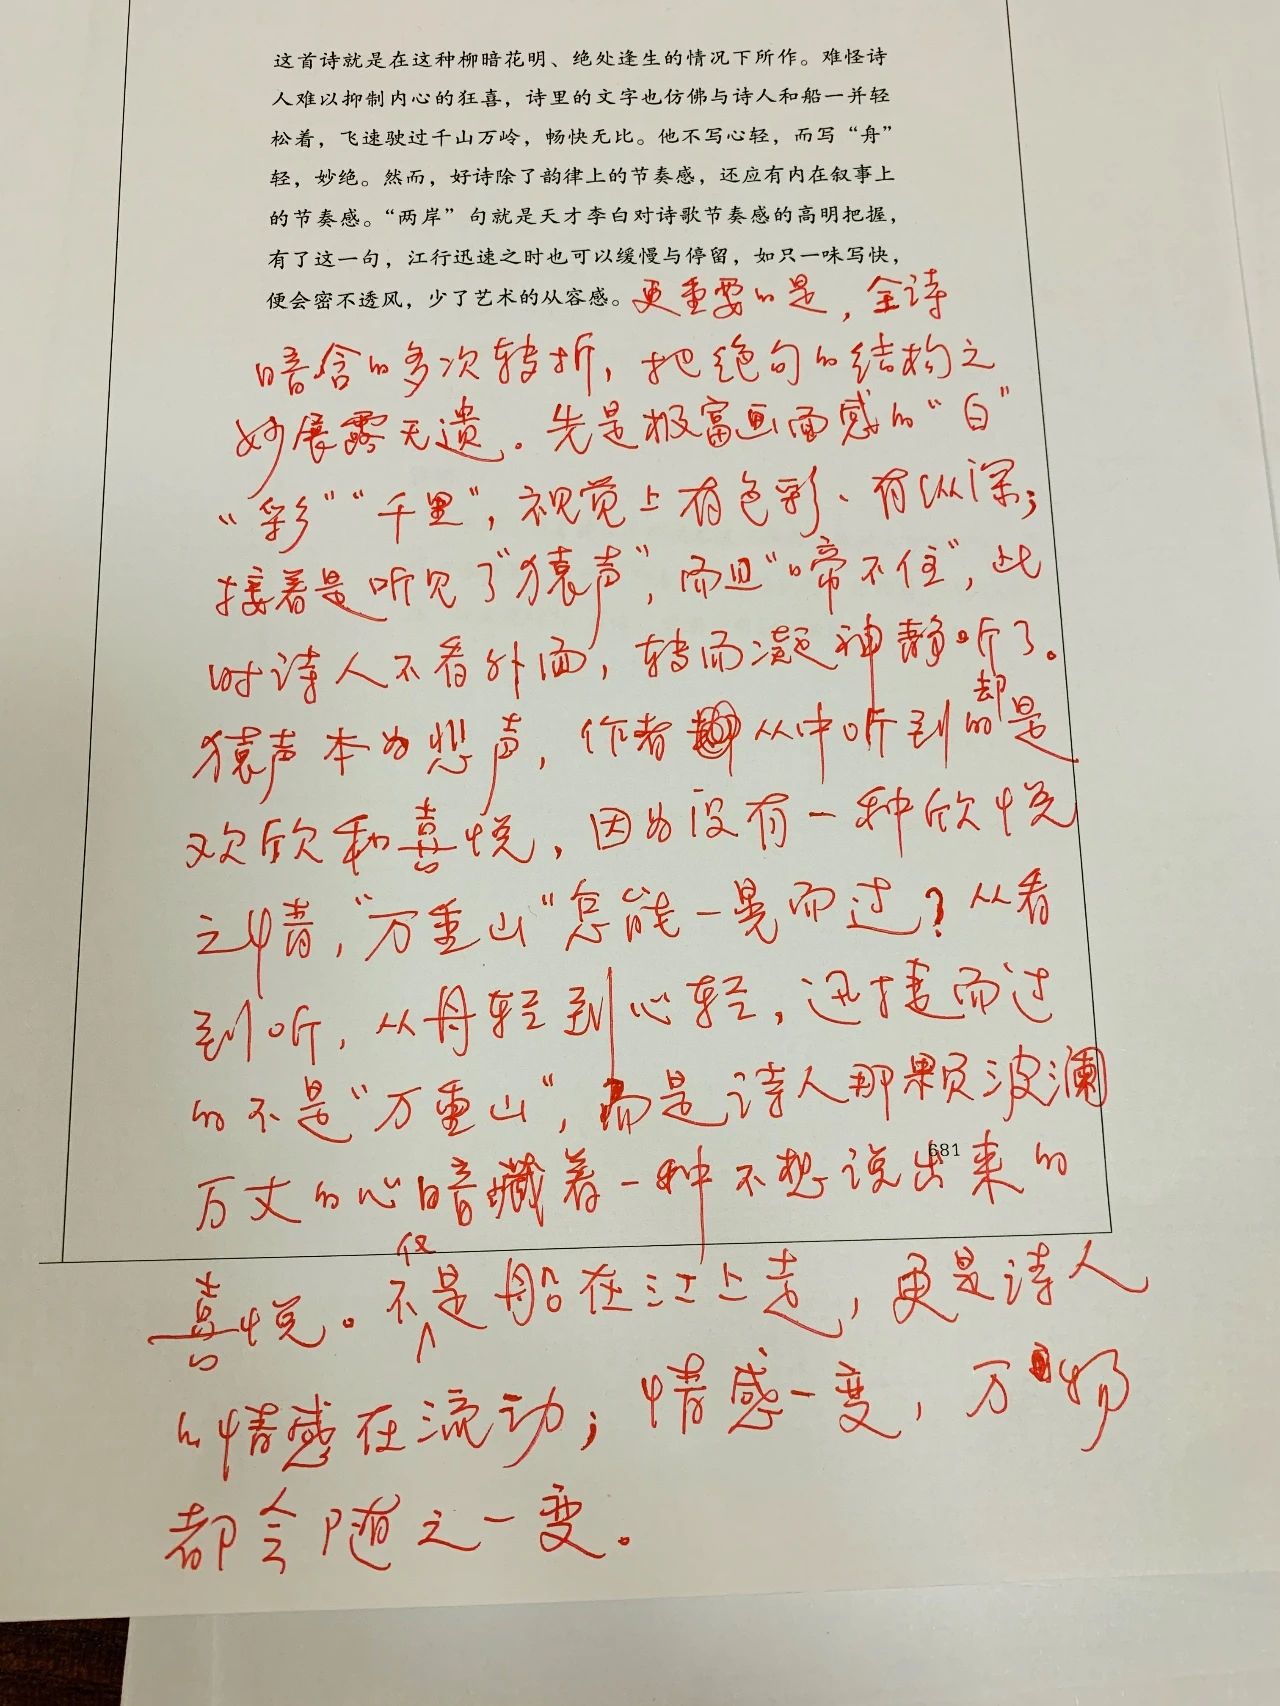 这首诗就是在这种柳暗花明、绝处逢生的情况下所作。难怪诗
人难以抑制内心的狂喜，诗里的文字也仿佛与诗人和船一并轻
松着，飞速驶过千山万岭，畅快无比。他不写心轻，而写“舟”
轻，妙绝。然而，好诗除了韵律上的节奏感，还应有内在叙事上
的节奏感。“两岸”句就是天才李白对诗歌节奏感的高明把握，
有了这一句，江行迅速之时也可以缓慢与停留，如只一味写快，
便会密不透风，少了艺术的从容感。更重要的是，全诗
暗含的多次转折，把绝句的结构之
妙展露无遗。先是极富画面感的“白”
“彩”“千里”，视觉上有色彩、有纵深；
接着是听见了“猿声”，而且“啼不住”，此
时诗人不看外面，转而凝神静听了。
猿声本为悲声，作者从中听到的却是
欢欣和喜悦，因为没有一种欣悦
之情，“万重山”怎能一晃而过？从看
到听，从舟轻到心轻，迅捷而过
的不是“万重山”，而是诗人那颗波澜
681
万丈的心暗藏着一种不想说出来的
喜悦。不仅是船在江上走，更是诗人
的情感在流动；情感一变，万物
都会随之一变。